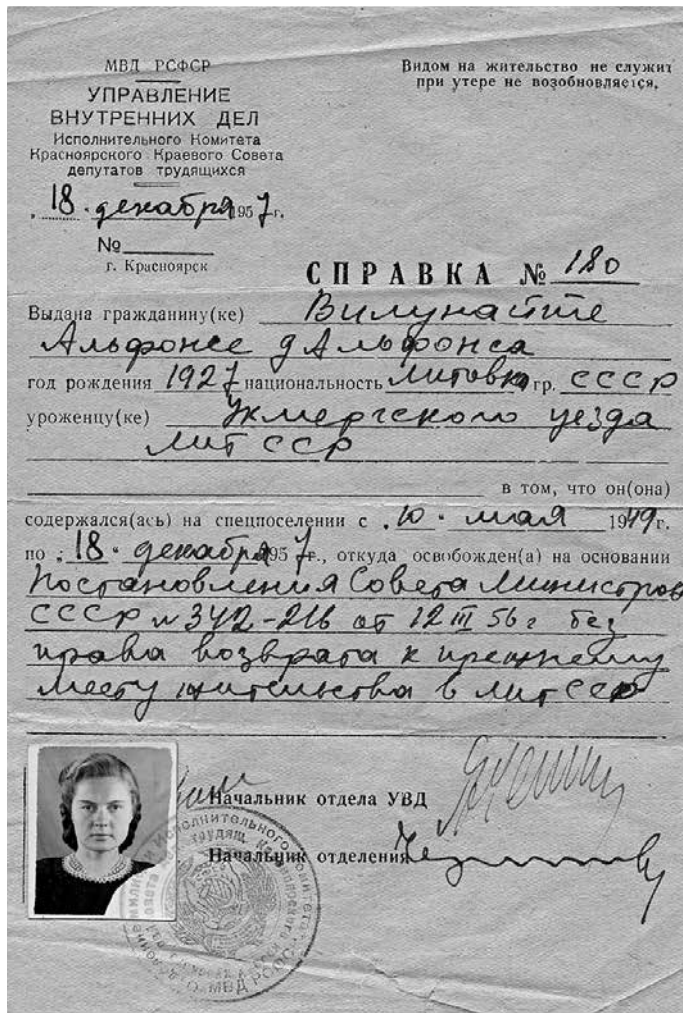 МВД РСФСР
УПРАВЛЕНИЕ
ВНУТРЕННИХ ДЕЛ
Исполнительного Комитета
Красноярского Краевого Совета
депутатов трудящихся
18 декабря 1957 г.
№
г. Красноярск
Видом на жительство не служит
при утере не возобновляется.
СПРАВКА № 180
Выдана гражданину(ке) Вилунайте
Альфонсе д Альфонса
год рождения 1927 национальность литовка гр. СССР
уроженцу(ке) Укмергского уезда
Лит ССР
в том, что он(она)
содержался(ась) на спецпоселении с 10 мая 1949 г.
по 18 декабря 1957 г., откуда освобожден(а) на основании
Постановления Совета Министров
СССР № 342-216 от 12 III 56 г без
права возврата к прежнему
месту жительства в Лит ССР
Начальник отдела УВД
Начальник отделения
МВД РСФСР